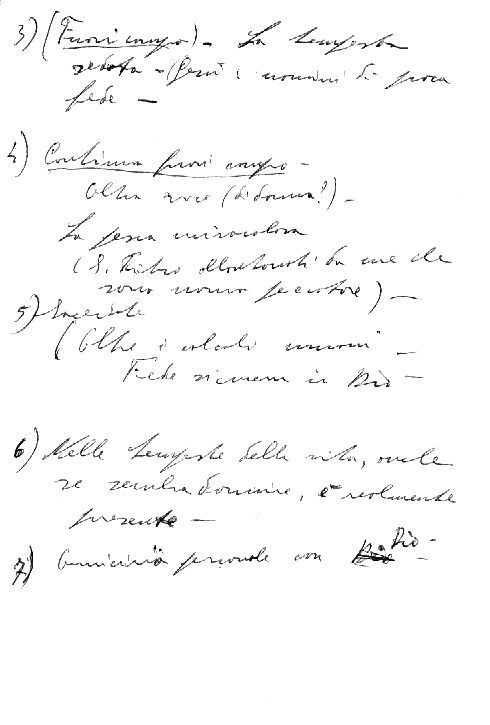 3) (Fuori campo) - La tempesta
sedata - (Gesù: uomini di poca
fede -
4) Continua fuori campo -
Altra voce (di donna?) -
La pesca miracolosa
(S. Pietro allontanati da me che
sono uomo peccatore) -
5) Sacerdote
(Oltre i calcoli umani -
Fede in Dio -
6) Nelle tempeste della vita, anche
se sembra dormire, è realmente
presente -
7) Amicizia personale con Dio -